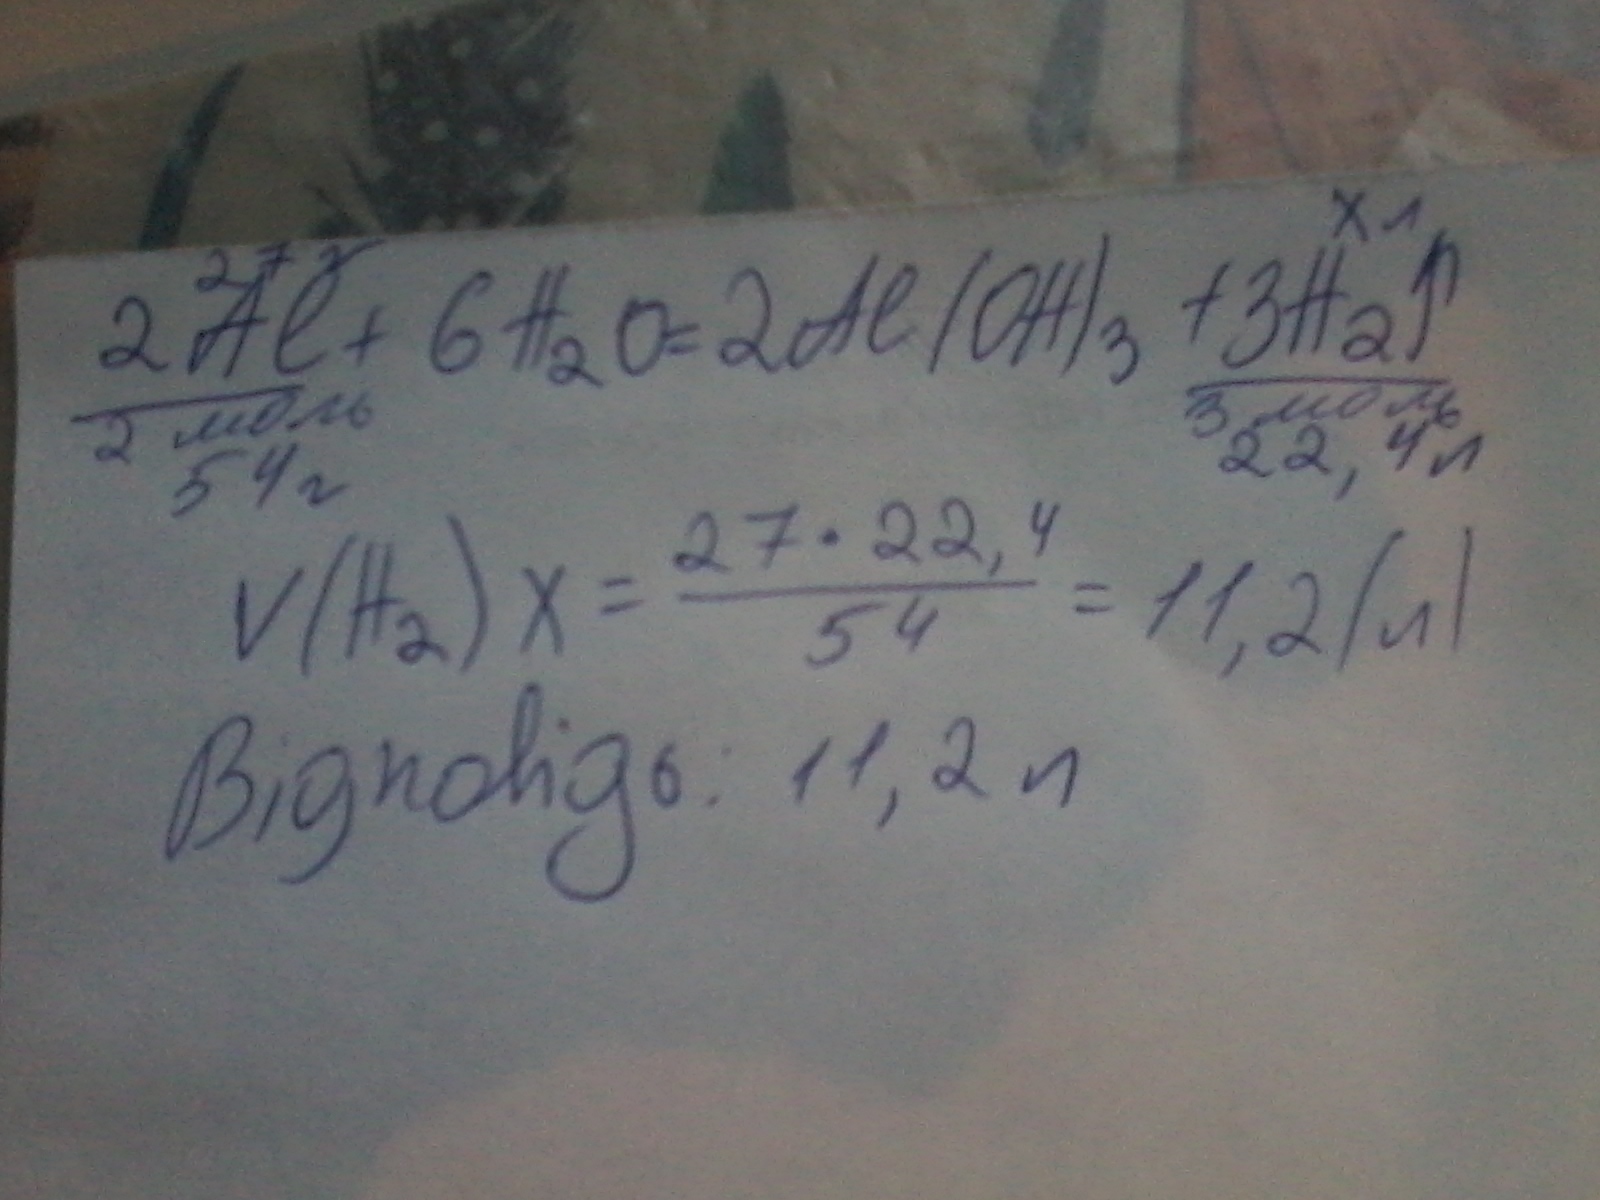 27 г х л
2Al + 6H₂O = 2Al(OH)₃ + 3H₂↑
2 моль 3 моль
54 г 22,4 л
V(H₂) x = 27 · 22,4 / 54 = 11,2 (л)
Відповідь: 11,2 л